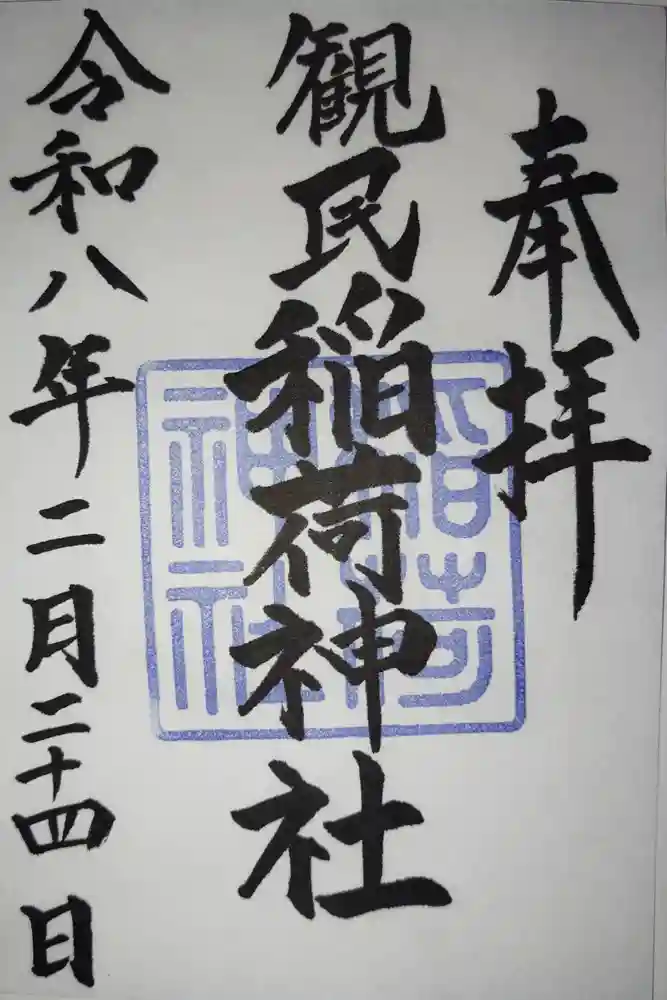 奉拝
観民稲荷神社
稲荷
神社
令和八年二月二十四日